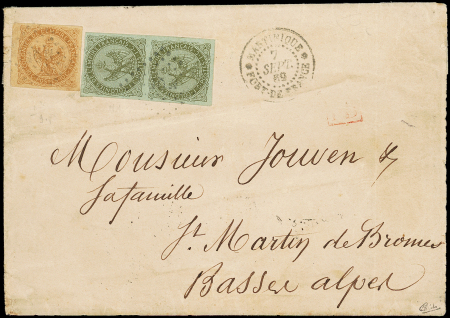 MARTINIQUE
7
SEPT.
69
FORT-DE-FRANCE
Monsieur Jouven &
sa famille
St Martin de Bromes
Basses alpes